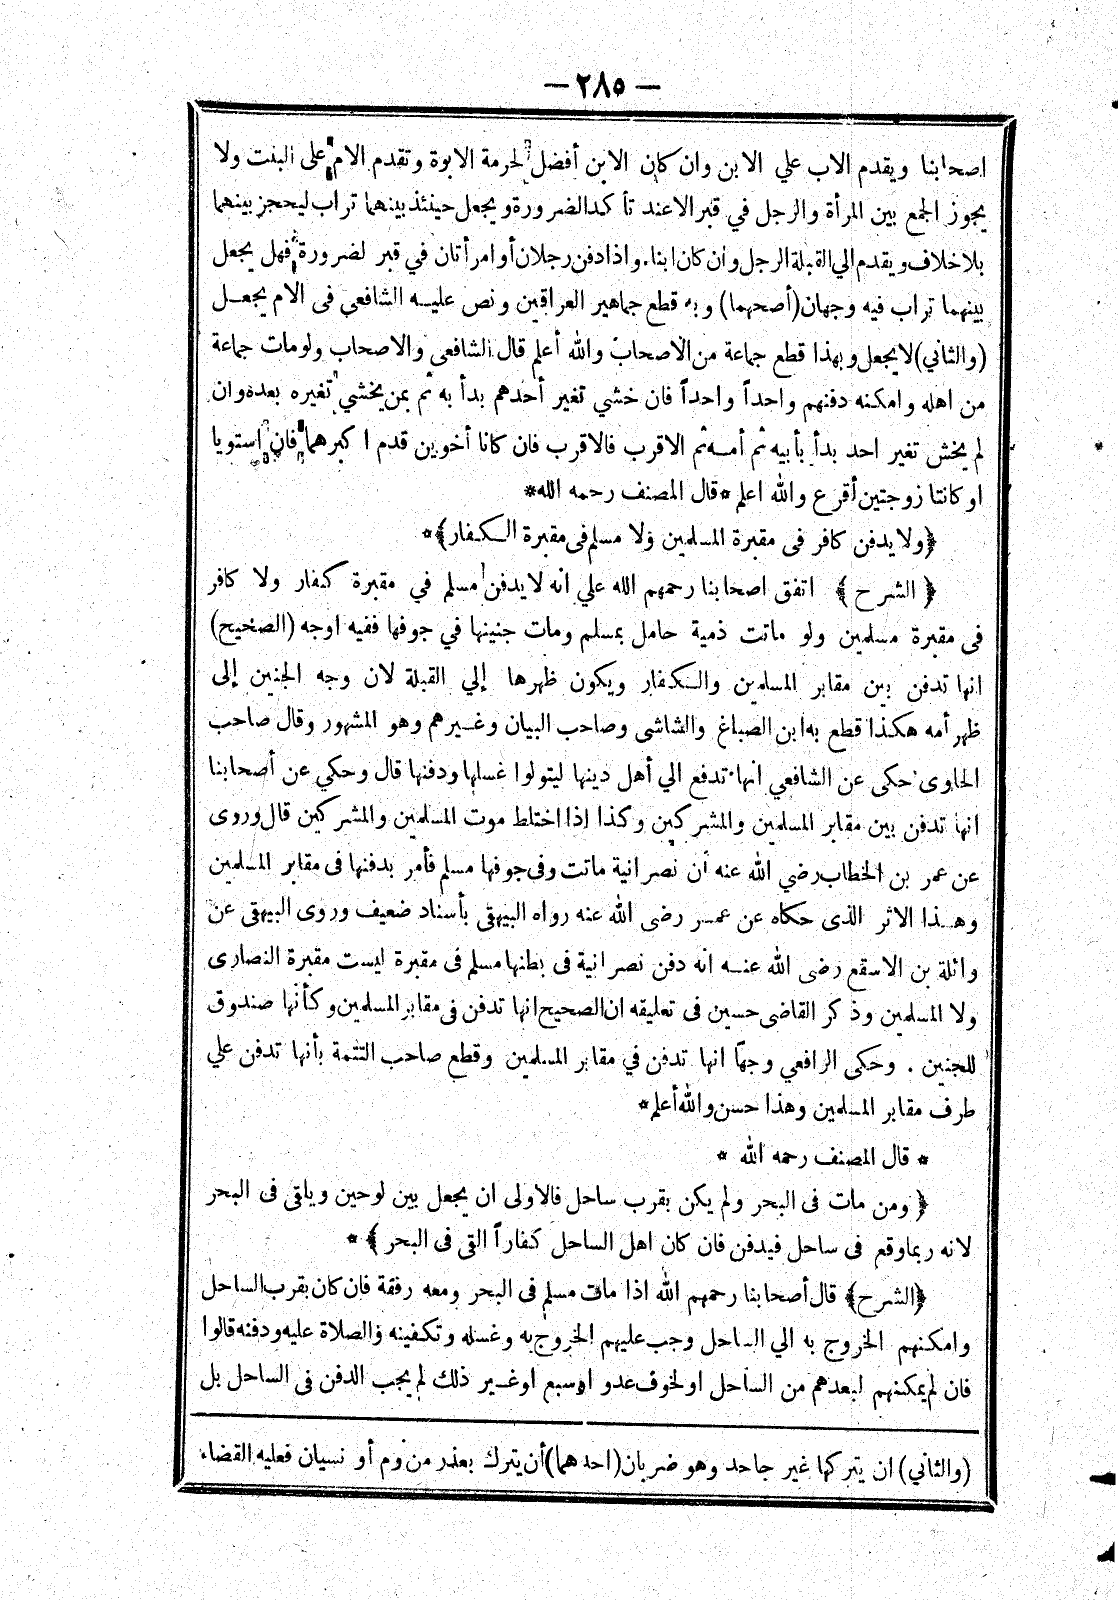 — ٢٨٥ —
اصحابنا ويقدم الاب علي الابن وان كان الابن أفضل لحرمة الابوة وتقدم الام على البنت ولا
يجوز الجمع بين المرأة والرجل في قبر الاعند تأكد الضرورة ويجعل حينئذ بينهما تراب ليحجز بينهما
بلا خلاف ويقدم الي القبلة الرجل وان كان ابنا. واذا دفن رجلان أو امرأتان في قبر لضرورة فهل يجعل
بينهما تراب فيه وجهان (أصحهما) وبه قطع جماهير العراقيين ونص عليه الشافعي فى الام يجعل
(والثاني) لا يجعل وبهذا قطع جماعة من الاصحاب والله أعلم قال الشافعي والاصحاب ولو مات جماعة
من اهله وامكنه دفنهم واحداً واحداً فان خشي تغير أحدهم بدأ به ثم بمن يخشي تغيره بعده وان
لم يخش تغير احد بدأ بأبيه ثم أمه ثم الاقرب فالاقرب فان كانا أخوين قدم اكبرهما فان استويا
او كانتا زوجتين أقرع والله اعلم * قال المصنف رحمه الله *
﴿ولا يدفن كافر فى مقبرة المسلمين ولا مسلم فى مقبرة الكفار﴾ *
﴿ الشرح ﴾ اتفق اصحابنا رحمهم الله علي انه لا يدفن مسلم في مقبرة كفار ولا كافر
فى مقبرة مسلمين ولو ماتت ذمية حامل بمسلم ومات جنينها في جوفها ففيه اوجه (الصحيح)
انها تدفن بين مقابر المسلمين والكفار ويكون ظهرها إلي القبلة لان وجه الجنين إلى
ظهر أمه هكذا قطع به ابن الصباغ والشاشى وصاحب البيان وغيرهم وهو المشهور وقال صاحب
الحاوى حكى عن الشافعي انها تدفع الي أهل دينها ليتولوا غسلها ودفنها قال وحكي عن أصحابنا
انها تدفن بين مقابر المسلمين والمشركين وكذا اذا اختلط موت المسلمين والمشركين قال وروى
عن عمر بن الخطاب رضي الله عنه أن نصرانية ماتت وفى جوفها مسلم فأمر بدفنها فى مقابر المسلمين
وهذا الاثر الذى حكاه عن عمر رضى الله عنه رواه البيهقى بأسناد ضعيف وروى البيهقى عن
واثلة بن الاسقع رضى الله عنه انه دفن نصرانية فى بطنها مسلم فى مقبرة ليست مقبرة النصارى
ولا المسلمين وذكر القاضى حسين فى تعليقه ان الصحيح انها تدفن فى مقابر المسلمين وكأنها صندوق
للجنين . وحكى الرافعي وجهًا انها تدفن في مقابر المسلمين وقطع صاحب التتمة بأنها تدفن علي
طرف مقابر المسلمين وهذا حسن والله أعلم *
* قال المصنف رحمه الله *
﴿ ومن مات فى البحر ولم يكن بقرب ساحل فالاولى ان يجعل بين لوحين ويلقى فى البحر
لانه ربما وقع فى ساحل فيدفن فان كان اهل الساحل كفاراً القى فى البحر ﴾ *
﴿الشرح﴾ قال أصحابنا رحمهم الله اذا مات مسلم فى البحر ومعه رفقة فان كان بقرب الساحل
وامكنهم الخروج به الي الساحل وجب عليهم الخروج به وغسله وتكفينه والصلاة عليه ودفنه قالوا
فان لم يمكنهم لبعدهم من الساحل او لخوف عدو او سبع او غير ذلك لم يجب الدفن فى الساحل بل
(والثاني) ان يتركها غير جاحد وهو ضربان (احدهما) أن يترك بعذر من نوم أو نسيان فعليه القضاء